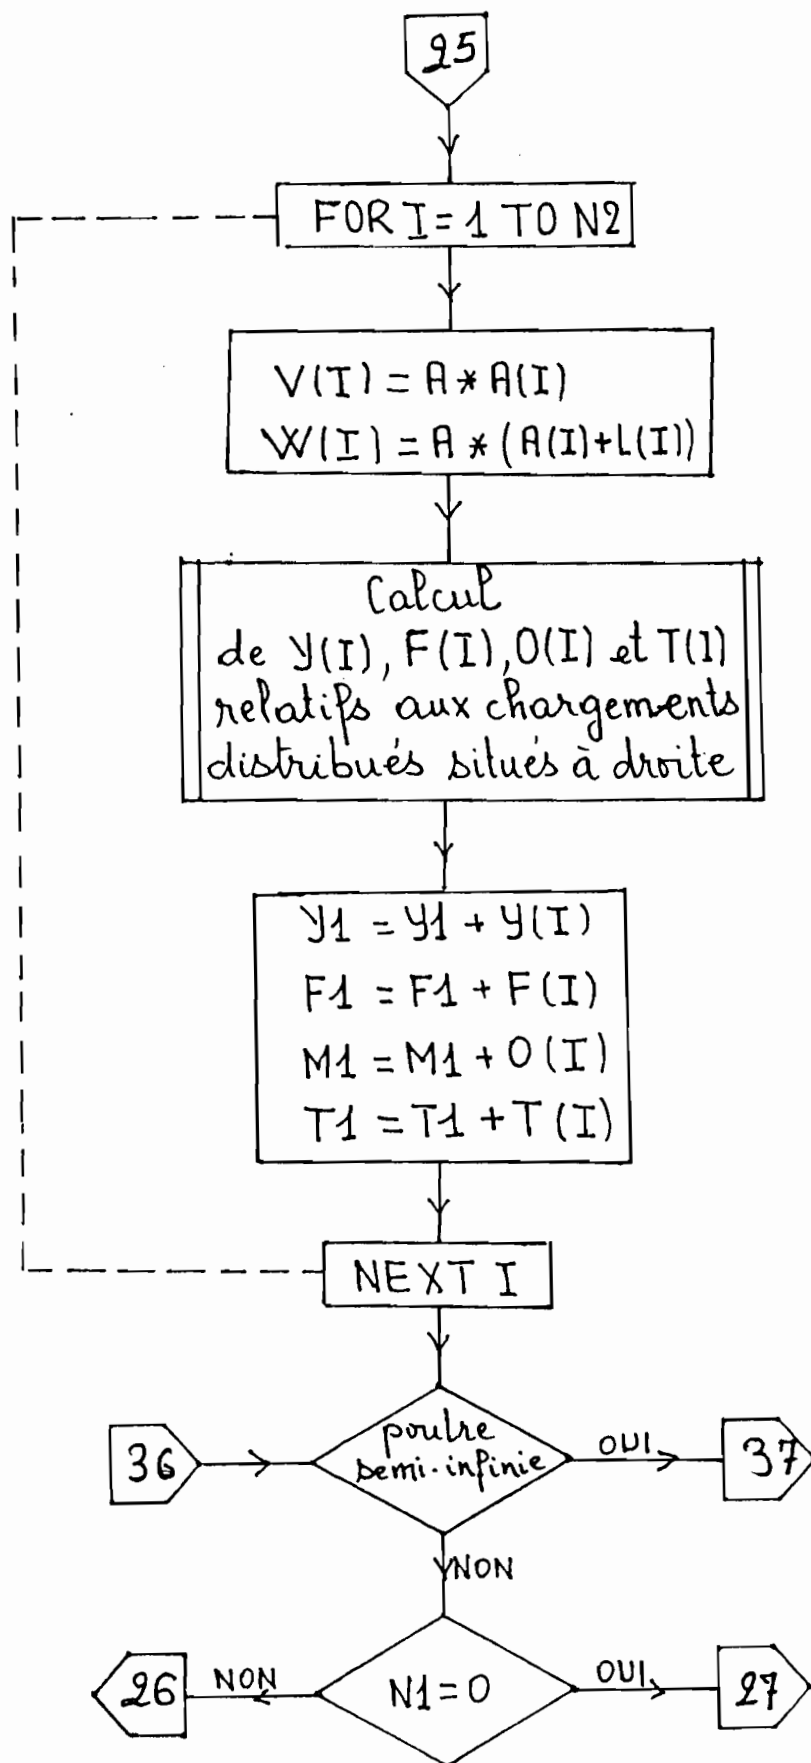 25
FOR I = 1 TO N2
V(I) = A * A(I)
W(I) = A * (A(I)+L(I))
Calcul
de Y(I), F(I), O(I) et T(I)
relatifs aux chargements
distribués situés à droite
Y1 = Y1 + Y(I)
F1 = F1 + F(I)
M1 = M1 + O(I)
T1 = T1 + T(I)
NEXT I
36
poutre
semi-infinie
OUI
37
NON
26
NON
N1 = 0
OUI
27